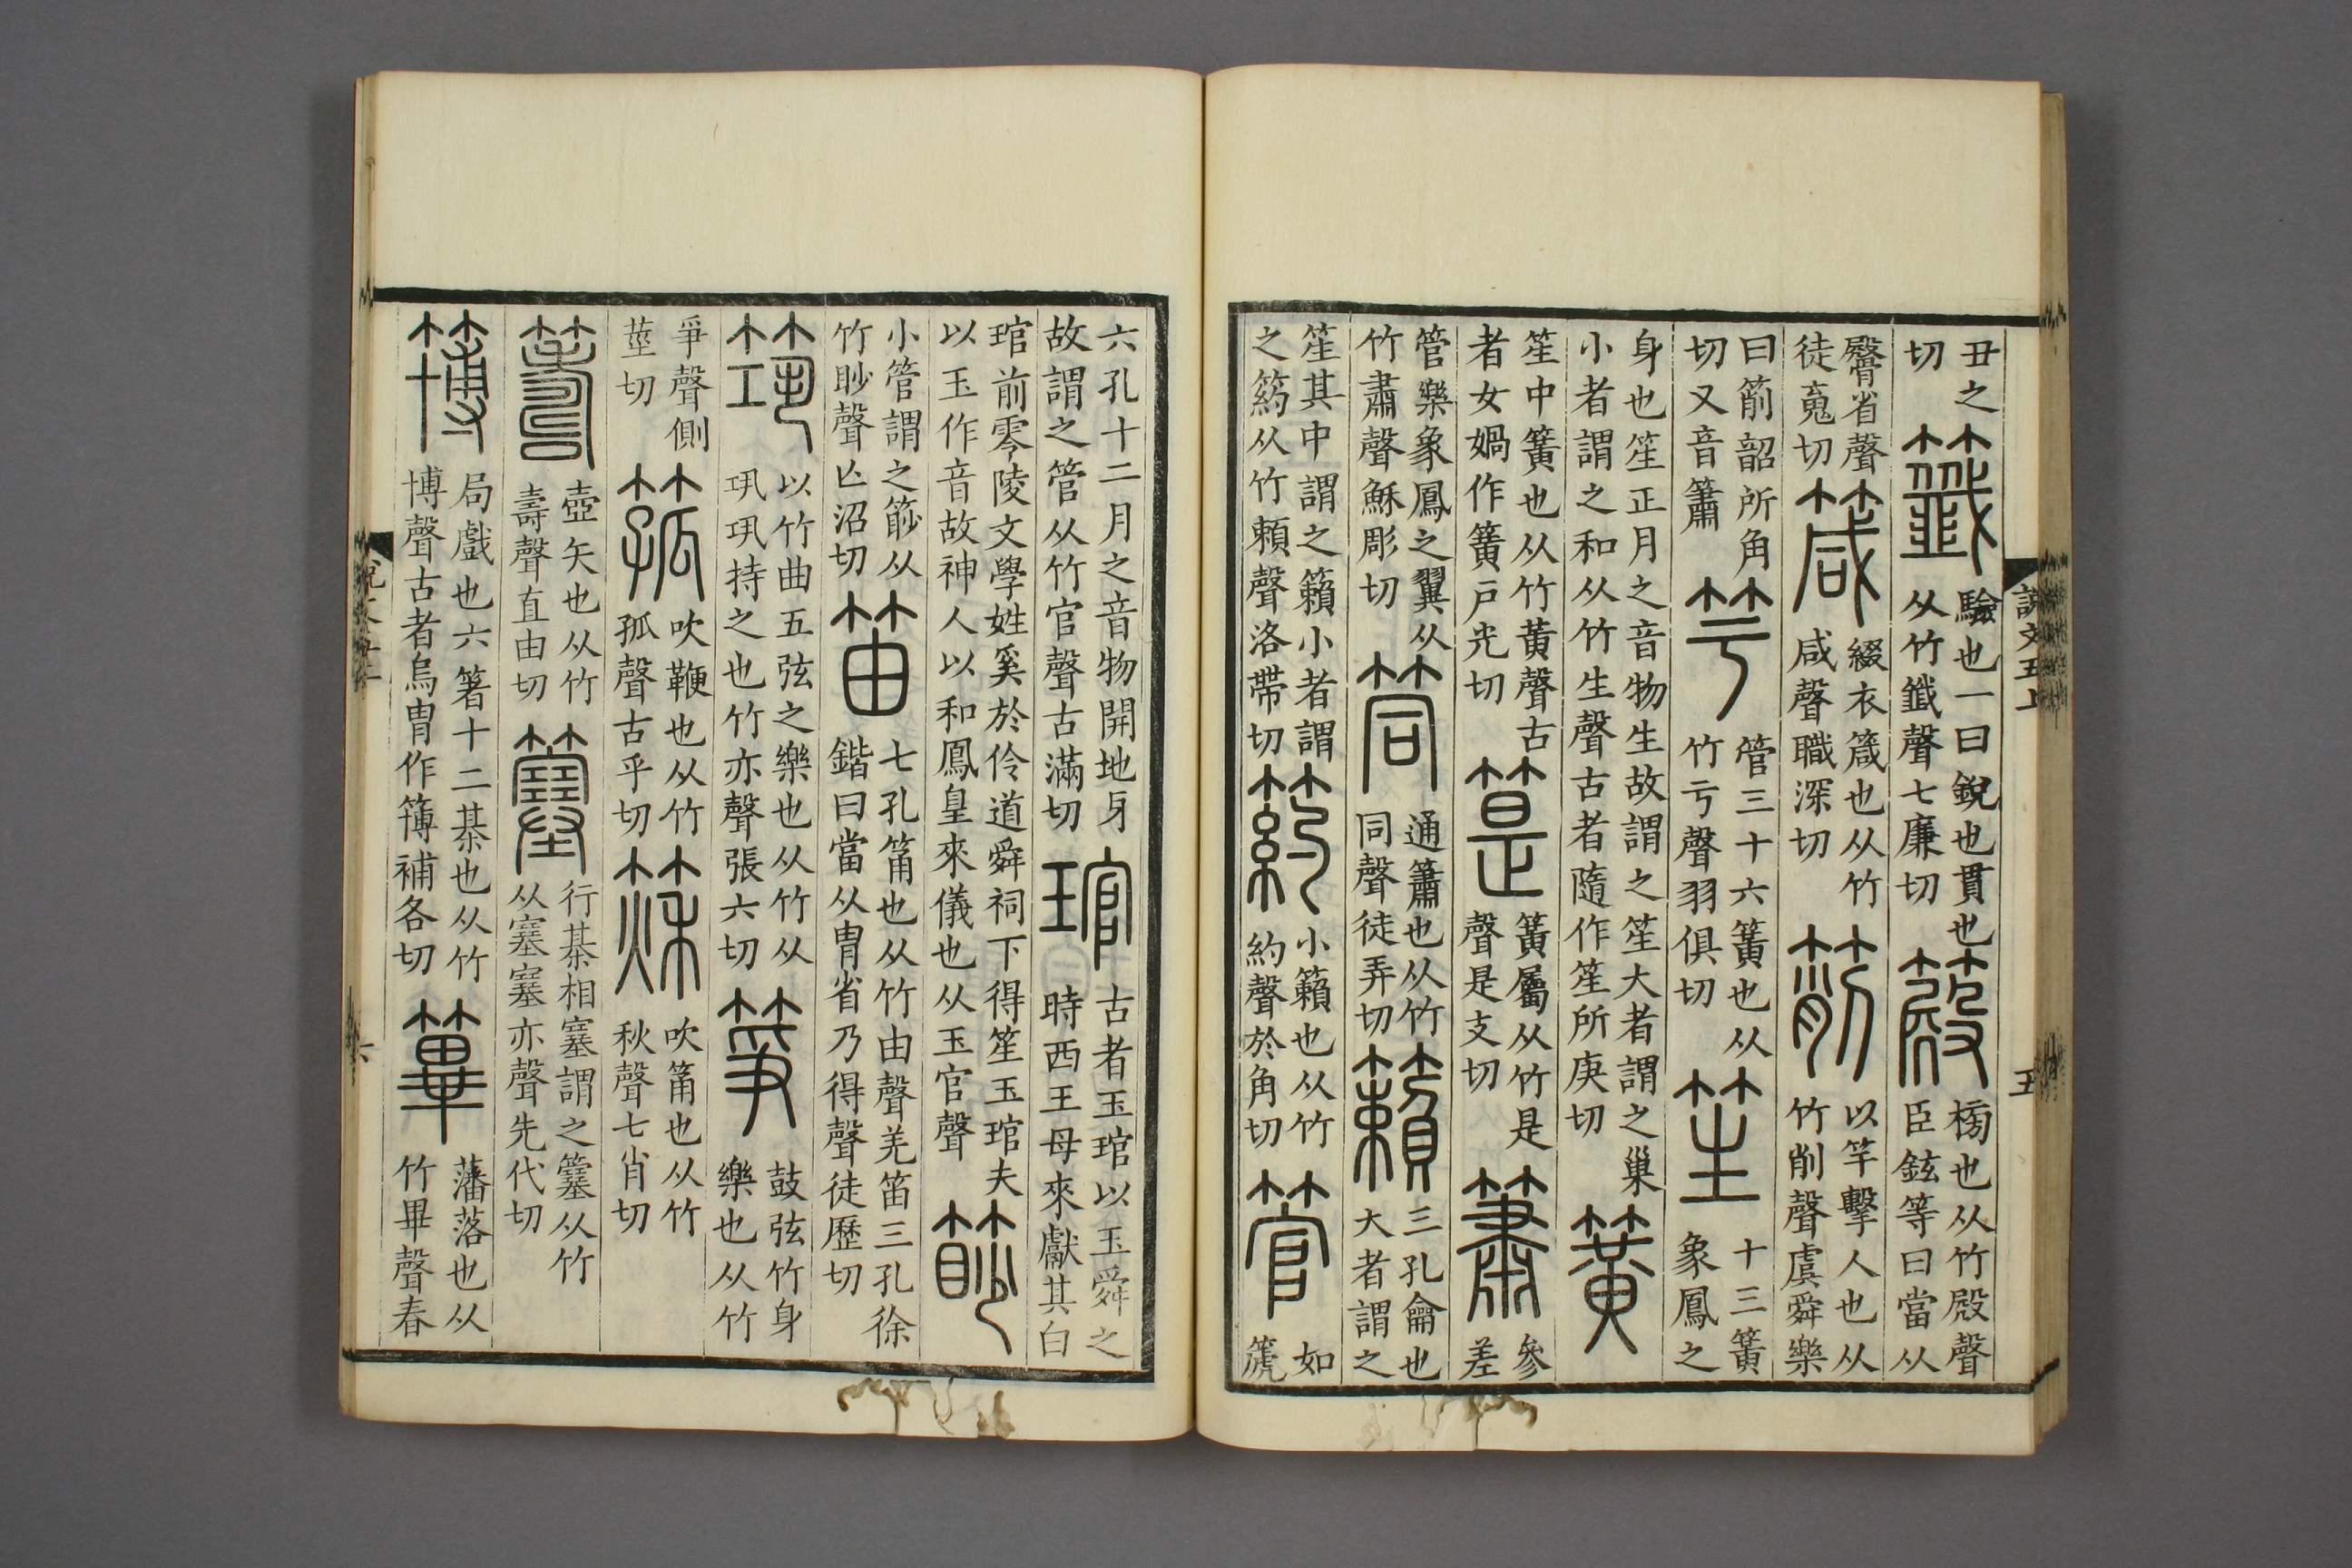 說文五上 五
丑之切 籤 驗也一曰銳也貫也从竹韱聲七廉切 𥴫 榜也从竹殿聲臣鉉等曰當从
臀省聲徒䰟切 箴 綴衣箴也从竹咸聲職深切 箾 以竿擊人也从竹削聲虞舜樂
曰箾韶所角切又音簫 竽 管三十六簧也从竹亏聲羽俱切 笙 十三簧象鳳之
身也笙正月之音物生故謂之笙大者謂之巢小者謂之和从竹生聲古者隨作笙所庚切 簧
笙中簧也从竹黃聲古者女媧作簧戶光切 䈕 簧屬从竹是聲是支切 簫 參差
管樂象鳳之翼从竹肅聲穌彫切 筒 通簫也从竹同聲徒弄切 籟 三孔龠也大者謂之
笙其中謂之籟小者謂之箹从竹賴聲洛帶切 箹 小籟也从竹約聲於角切 管 如篪
六孔十二月之音物開地牙故謂之管从竹官聲古滿切 琯 古者玉琯以玉舜之時西王母來獻其白
琯前零陵文學姓奚於伶道舜祠下得笙玉琯夫以玉作音故神人以和鳳皇來儀也从玉官聲 篎
小管謂之篎从竹眇聲亡沼切 笛 七孔筩也从竹由聲羌笛三孔徐鍇曰當从冑省乃得聲徒歷切
筑 以竹曲五弦之樂也从竹从巩巩持之也竹亦聲張六切 箏 鼓弦竹身樂也从竹
爭聲側莖切 箛 吹鞭也从竹孤聲古乎切 篍 吹筩也从竹秋聲七肖切
籌 壺矢也从竹壽聲直由切 簺 行棊相塞謂之簺从竹从塞塞亦聲先代切
簙 局戲也六箸十二棊也从竹博聲古者烏冑作簙補各切 篳 藩落也从竹畢聲春
六